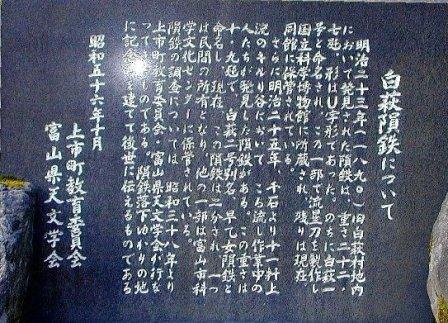 白萩隕鉄について
明治二十三年(一八九〇)旧白萩村地内
において発見された隕鉄は、重さ二十二・
七瓩、形はU字形であった。のちに白萩一
号と命名され、この一部で流星刀を製作し
国立科学博物館に所蔵され、残りは現在
同館に保管されている。
さらに明治二十五年、千石より十一粁上
流のキルリ谷において、ころ流し作業中の
人たちが発見した隕鉄がある。この重さは
十・九瓩で、白萩二号別名、早乙女隕鉄と
命名し、現在、二分され、一つ
は民間の所有となり、他の一部は富山市科
学文化センターに保管されている。
隕鉄の調査については、昭和三十八年より
上市町教育委員会・富山県天文学会が行な
ってきたものである。隕鉄落下ゆかりの地
に記念碑を建てて後世に伝えるものである
昭和五十六年十月
上市町教育委員会
富山県天文学会